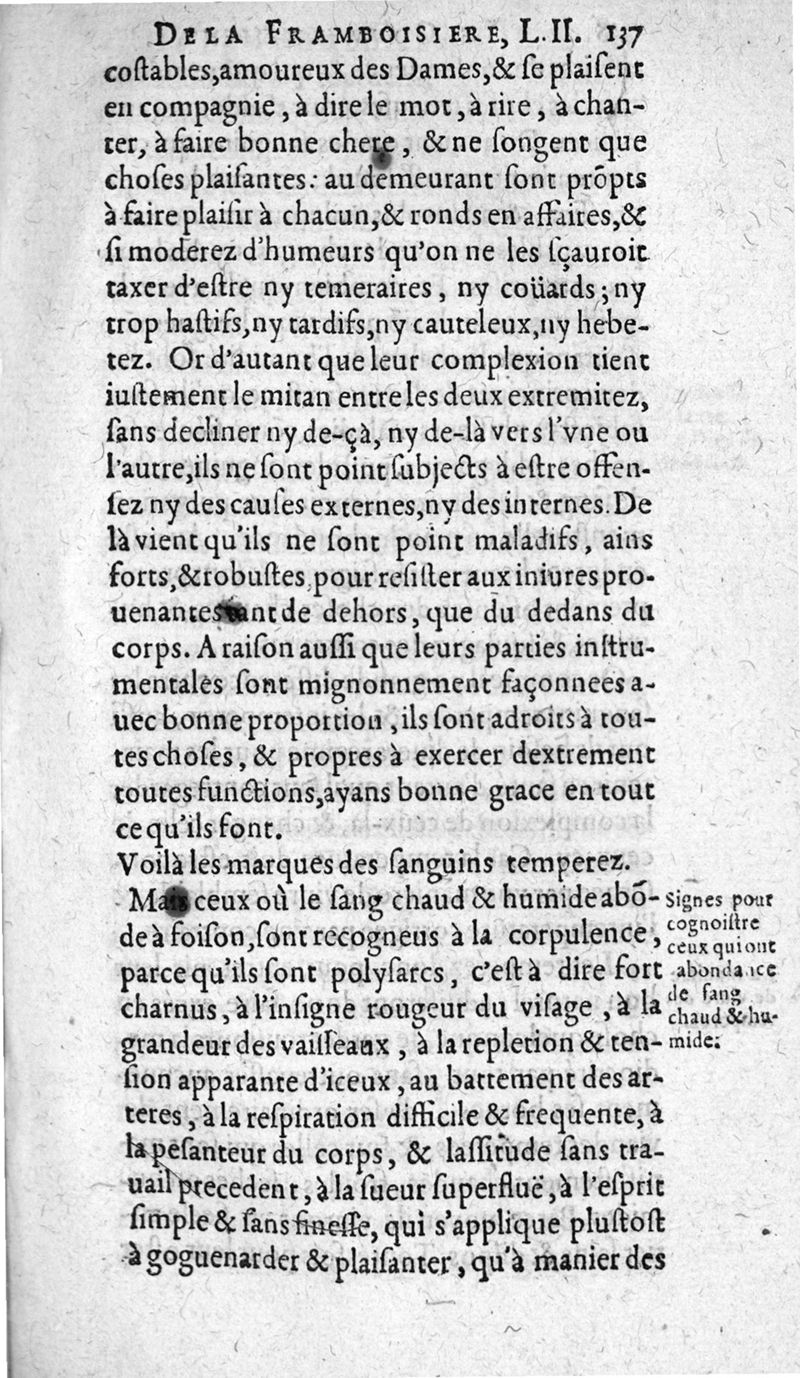 DE LA FRAMBOISIERE, L. II. 137
costables,amoureux des Dames,& se plaisent
en compagnie, à dire le mot, à rire, à chan-
ter, à faire bonne chere, & ne songent que
choses plaisantes: au demeurant sont prõpts
à faire plaisir à chacun,& ronds en affaires,&
si moderez d'humeurs qu'on ne les sçauroit
taxer d'estre ny temeraires, ny coüards; ny
trop hastifs,ny tardifs,ny cauteleux,ny hebe-
tez. Or d'autant que leur complexion tient
iustement le mitan entre les deux extremitez,
sans decliner ny de-çà, ny de-là vers l'vne ou
l'autre,ils ne sont point subjects à estre offen-
sez ny des causes externes,ny des internes. De
là vient qu'ils ne sont point maladifs, ains
forts,& robustes pour resister aux iniures pro-
uenantes tant de dehors, que du dedans du
corps. A raison aussi que leurs parties instru-
mentales sont mignonnement façonnees a-
uec bonne proportion, ils sont adroits à tou-
tes choses, & propres à exercer dextrement
toutes functions,ayans bonne grace en tout
ce qu'ils font.
Voilà les marques des sanguins temperez.
Mais ceux où le sang chaud & humide abõ-
de à foison,sont recogneus à la corpulence,
parce qu'ils sont polysarcs, c'est à dire fort
charnus, à l'insigne rougeur du visage, à la
grandeur des vaisseaux, à la repletion & ten-
sion apparante d'iceux, au battement des ar-
teres, à la respiration difficile & frequente, à
la pesanteur du corps, & lassitude sans tra-
uail precedent, à la sueur superfluë, à l'esprit
simple & sans finesse, qui s'applique plustost
à goguenarder & plaisanter, qu'à manier des
Signes pour
cognoistre
ceux qui ont
abondance
de sang
chaud & hu-
mide: